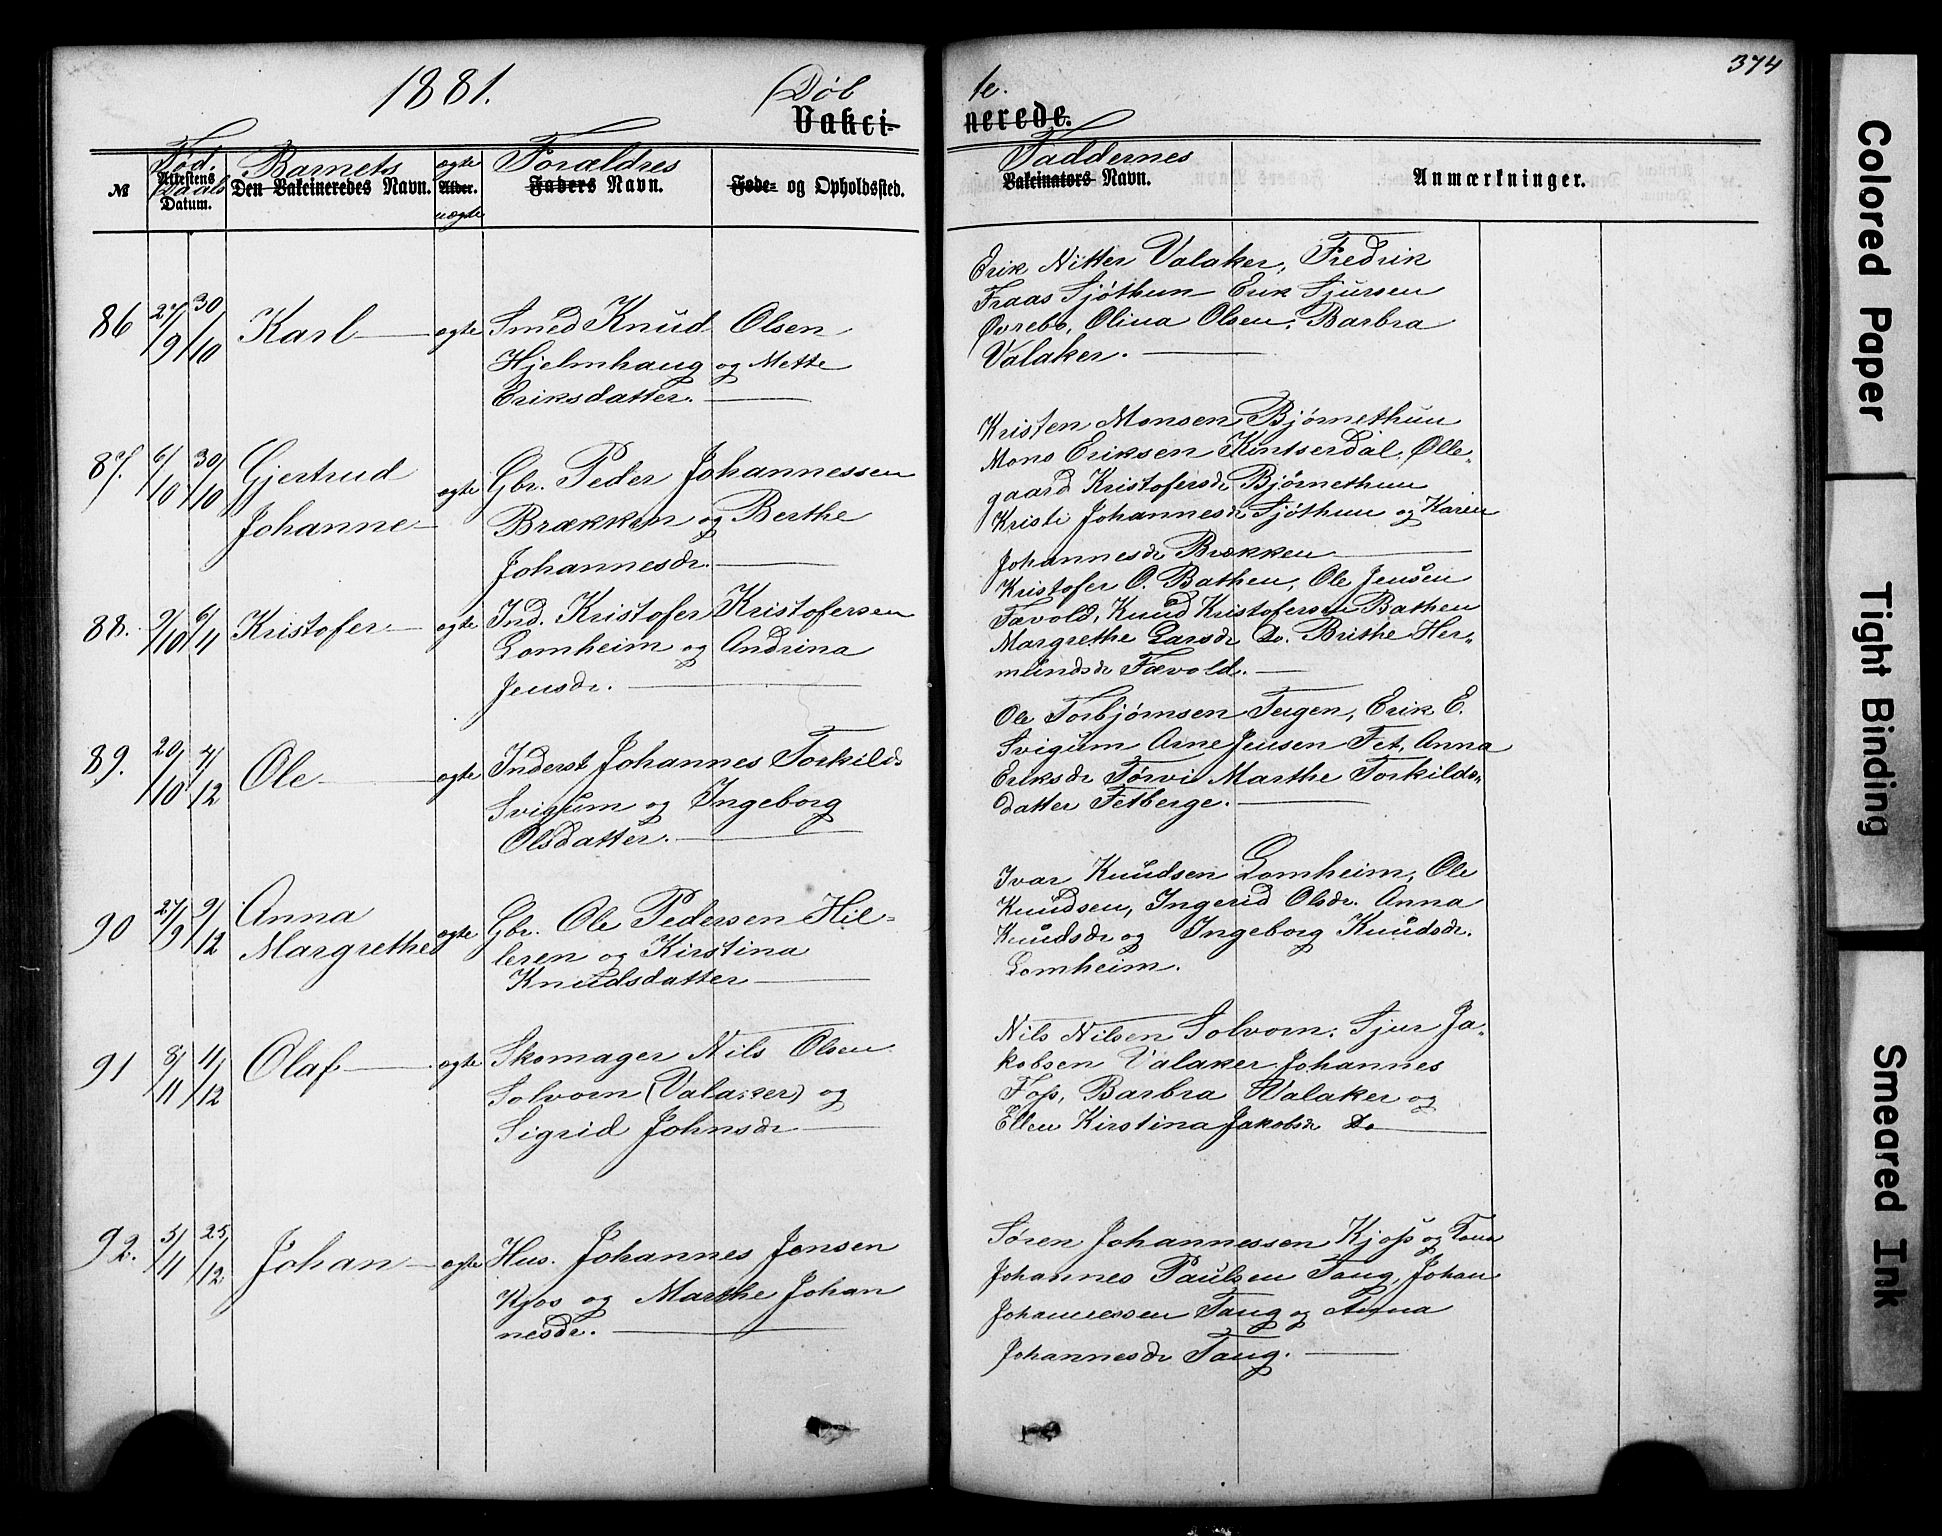 1881.
Døb
te.
374
Vakci-
nerede.
№
Fød.
Attestens
Daab
Datum.
Barnets
Den Vakcineredes Navn.
ægte
Alder.
uægte
Forældres
Faders Navn.
Føde- og Opholdssted.
Faddernes
Vakcinators Navn.
Anmærkninger.
86 27/9 30/10 Karl ægte Smed Knud Olsen
Hjelmhaug og Mette
Eriksdatter.
Erik Nitter Valaker, Fredrik
Fraas Sjøthun Erik Sjursen
Øvrebø, Olina Olsen, Barbra
Valaker.
87. 6/10 30/10 Gjertrud
Johanne ægte Gbr. Peder Johannessen
Brækken og Berthe
Johannesdr.
Kristen Monsen Bjørnethun
Mons Eriksen Kintserdal, Olle-
gaard Kristofersdr Bjørnethun
Kristi Johannesdr Sjøthun og Karen
Johannesdr Brækken
88. 9/10 6/11 Kristofer ægte Ind. Kristofer Kristofersen
Lomheim og Andrina
Jensdr.
Kristofer O. Bathen, Ole Jensen
Favold, Knud Kristofersen Bathen
Margrethe Larsdr Do. Brithe Her-
mundsdr Fævold.
89. 20/10 4/12 Ole ægte Inderst Johannes Torkilds
Svigum og Ingeborg
Olsdatter.
Ole Torbjørnsen Teigen, Erik E.
Svigum Arne Jensen Fet, Anna
Eriksdr Tørvi Marthe Torkilds-
datter Fetberge.
90 27/9 9/12 Anna
Margrethe ægte Gbr. Ole Pedersen Hil-
leren og Kirstina
Knudsdatter
Ivar Knudsen Lomheim, Ole
Knudsen, Ingerid Olsdr. Anna
Knudsdr og Ingeborg Knudsdr.
Lomheim.
91 8/11 4/12 Olaf ægte Skomager Nils Olsen
Solvorn (Valaker) og
Sigrid Johnsdr
Nils Nilsen Solvorn, Sjur Ja-
kobsen Valaker Johannes
Foss, Barbra Valaker og
Ellen Kirstina Jakobsdr Do
92. 5/11 25/12 Johan ægte Hus. Johannes Jensen
Kjos og Marthe Johan
nesdr.
Søren Johannessen Kjoss og Kone
Johannes Paulsen Taug, Johan
Johannessen Taug og Anna
Johannesdr Taug.
Colored Paper
Tight Binding
Smeared Ink